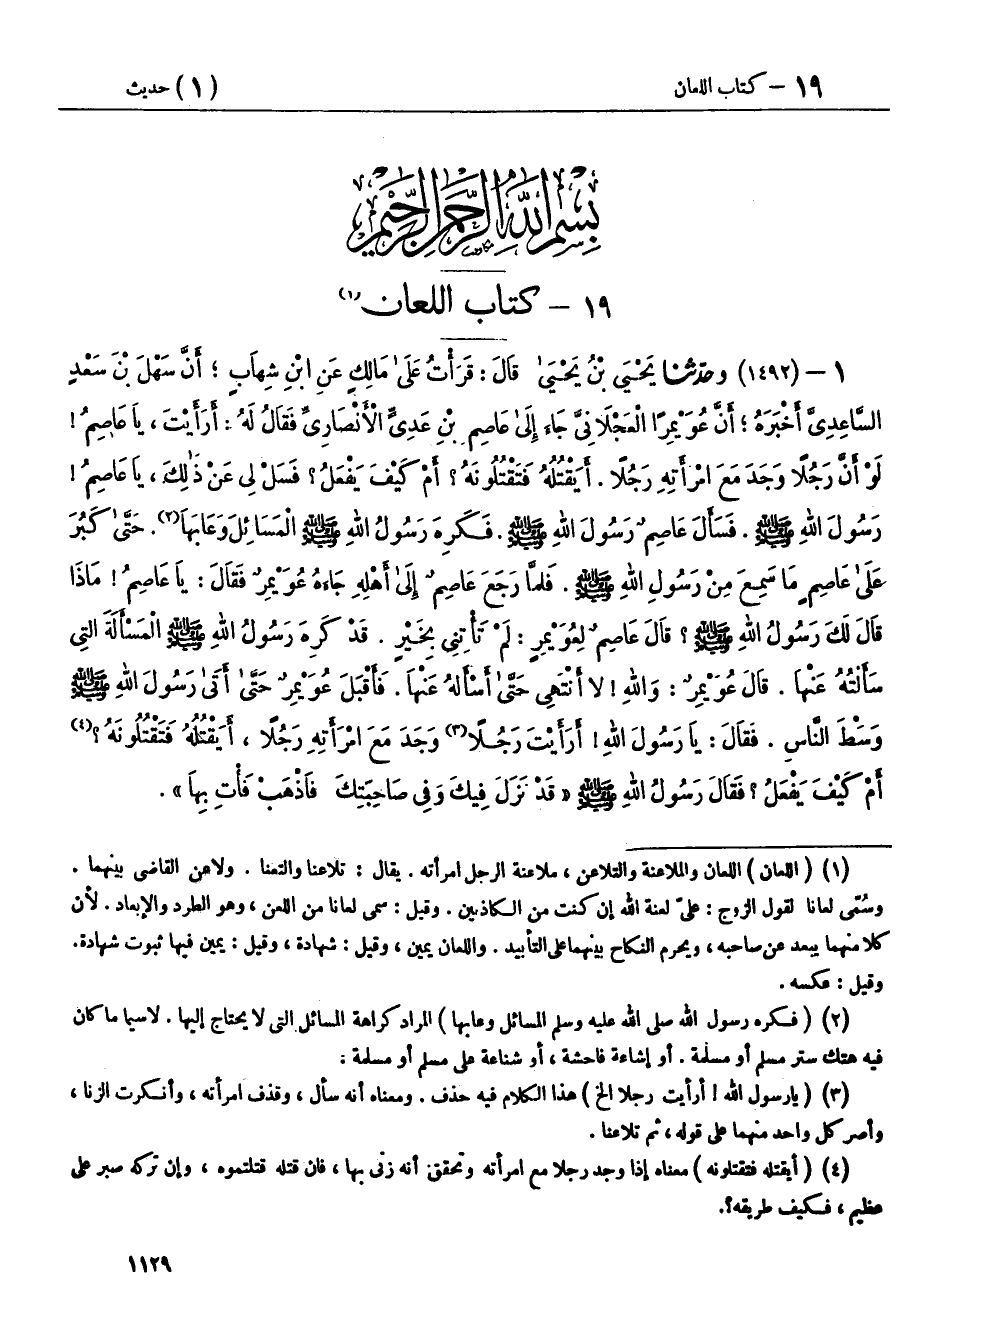 ١٩ - كتاب اللعان (١) حديث
بِسْمِ اللَّهِ الرَّحْمَٰنِ الرَّحِيمِ
١٩ - كتاب اللعان (١)
١ - (١٤٩٢) وحدثنا يَحْيَى بْنُ يَحْيَىٰ قَالَ : قَرَأْتُ عَلَىٰ مَالِكٍ عَنِ ابْنِ شِهَابٍ ؛ أَنَّ سَهْلَ بْنَ سَعْدٍ
السَّاعِدِيَّ أَخْبَرَهُ ؛ أَنَّ عُوَيْمِرًا الْعَجْلَانِيَّ جَاءَ إِلَىٰ عَاصِمِ بْنِ عَدِيٍّ الْأَنْصَارِيِّ فَقَالَ لَهُ : أَرَأَيْتَ ، يَا عَاصِمُ !
لَوْ أَنَّ رَجُلًا وَجَدَ مَعَ امْرَأَتِهِ رَجُلًا . أَيَقْتُلُهُ فَتَقْتُلُونَهُ ؟ أَمْ كَيْفَ يَفْعَلُ ؟ فَسَلْ لِي عَنْ ذَٰلِكَ ، يَا عَاصِمُ !
رَسُولَ اللهِ ﷺ . فَسَأَلَ عَاصِمٌ رَسُولَ اللهِ ﷺ . فَكَرِهَ رَسُولُ اللهِ ﷺ الْمَسَائِلَ وَعَابَهَا(٢). حَتَّىٰ كَبُرَ
عَلَىٰ عَاصِمٍ مَا سَمِعَ مِنْ رَسُولِ اللهِ ﷺ . فَلَمَّا رَجَعَ عَاصِمٌ إِلَىٰ أَهْلِهِ جَاءَهُ عُوَيْمِرٌ فَقَالَ : يَا عَاصِمُ ! مَاذَا
قَالَ لَكَ رَسُولُ اللهِ ﷺ ؟ قَالَ عَاصِمٌ لِعُوَيْمِرٍ : لَمْ تَأْتِنِي بِخَيْرٍ . قَدْ كَرِهَ رَسُولُ اللهِ ﷺ الْمَسْأَلَةَ الَّتِي
سَأَلْتُهُ عَنْهَا . قَالَ عُوَيْمِرٌ : وَاللهِ ! لَا أَنْتَهِي حَتَّىٰ أَسْأَلَهُ عَنْهَا . فَأَقْبَلَ عُوَيْمِرٌ حَتَّىٰ أَتَىٰ رَسُولَ اللهِ ﷺ
وَسْطَ النَّاسِ . فَقَالَ : يَا رَسُولَ اللهِ ! أَرَأَيْتَ رَجُلًا(٣) وَجَدَ مَعَ امْرَأَتِهِ رَجُلًا ، أَيَقْتُلُهُ فَتَقْتُلُونَهُ ؟(٤)
أَمْ كَيْفَ يَفْعَلُ ؟ فَقَالَ رَسُولُ اللهِ ﷺ « قَدْ نَزَلَ فِيكَ وَفِي صَاحِبَتِكَ فَاذْهَبْ فَأْتِ بِهَا » .
(١) ( اللعان ) اللعان والملاعنة والتلاعن ، ملاعنة الرجل امرأته . يقال : تلاعنا والتعنا . ولاعن القاضى بينهما .
وسُمّى لعانا لقول الزوج : علىّ لعنة الله إن كنت من الكاذبين . وقيل : سمى لعانا من اللعن ، وهو الطرد والإبعاد . لأن
كلا منهما يبعد عن صاحبه ، ويحرم النكاح بينهما على التأبيد . واللعان يمين ، وقيل : شهادة ، وقيل : يمين فيها ثبوت شهادة.
وقيل : عكسه .
(٢) ( فكره رسول الله صلى الله عليه وسلم المسائل وعابها ) المراد كراهة المسائل التى لا يحتاج إليها . لاسيما ما كان
فيه هتك ستر مسلم أو مسلمة . أو إشاعة فاحشة ، أو شناعة على مسلم أو مسلمة :
(٣) ( يا رسول الله ! أرأيت رجلا الخ ) هذا الكلام فيه حذف . ومعناه أنه سأل ، وقذف امرأته ، وأنكرت الزنا ،
وأصر كل واحد منهما على قوله ، ثم تلاعنا .
(٤) ( أيقتله فتقتلونه ) معناه إذا وجد رجلا مع امرأته وتحقق أنه زنى بها ، فان قتله قتلتموه ، وإن تركه صبر على
عظيم ، فكيف طريقه؟.
١١٢٩